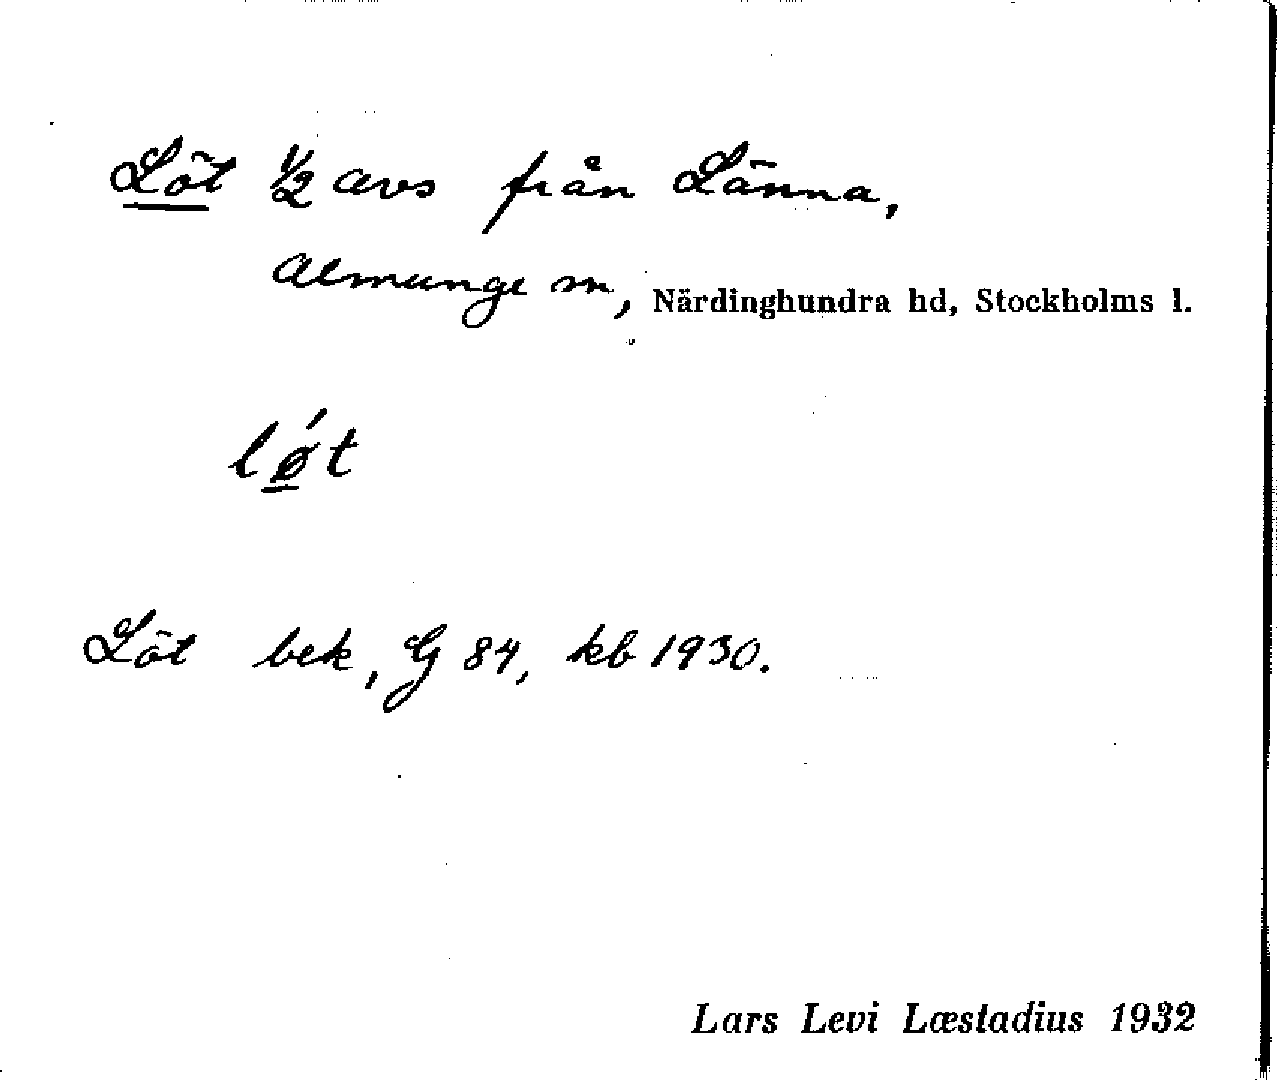 Löt ½ avs från Länna,
Almunge sn, Närdinghundra hd, Stockholms l.
lǿt
Löt bek, G 84, kb 1930.
Lars Levi Læstadius 1932